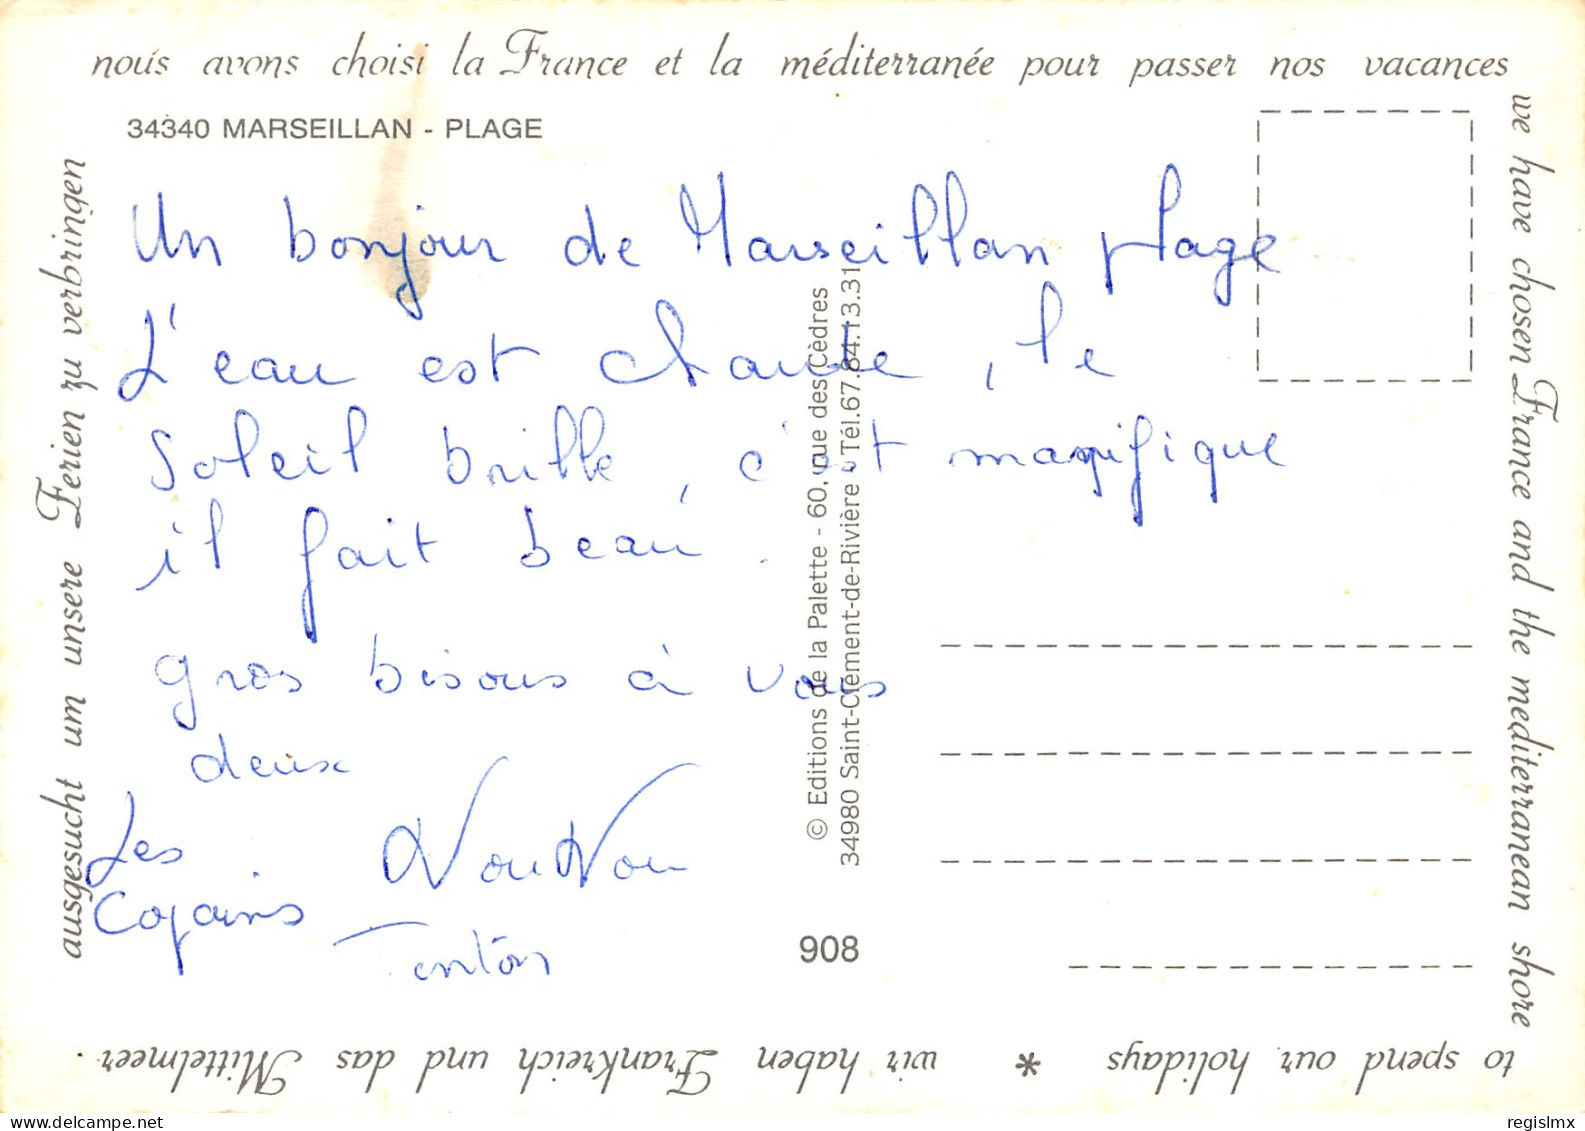 nous avons choisi la France et la méditerranée pour passer nos vacances
we have chosen France and the mediterranean shore
to spend our holidays * wir haben Frankreich und das Mittelmeer
ausgesucht um unsere Ferien zu verbringen
34340 MARSEILLAN - PLAGE
Un bonjour de Marseillan plage
L'eau est chaude, le
Soleil brille, c'est magnifique
il fait beau.
gros bisous à vous
deux
Les
Copains
NouNou
Tonton
© Editions de la Palette - 60, rue des Cèdres
34980 Saint-Clément-de-Rivière - Tél. 67.84.13.31
908
regislmx